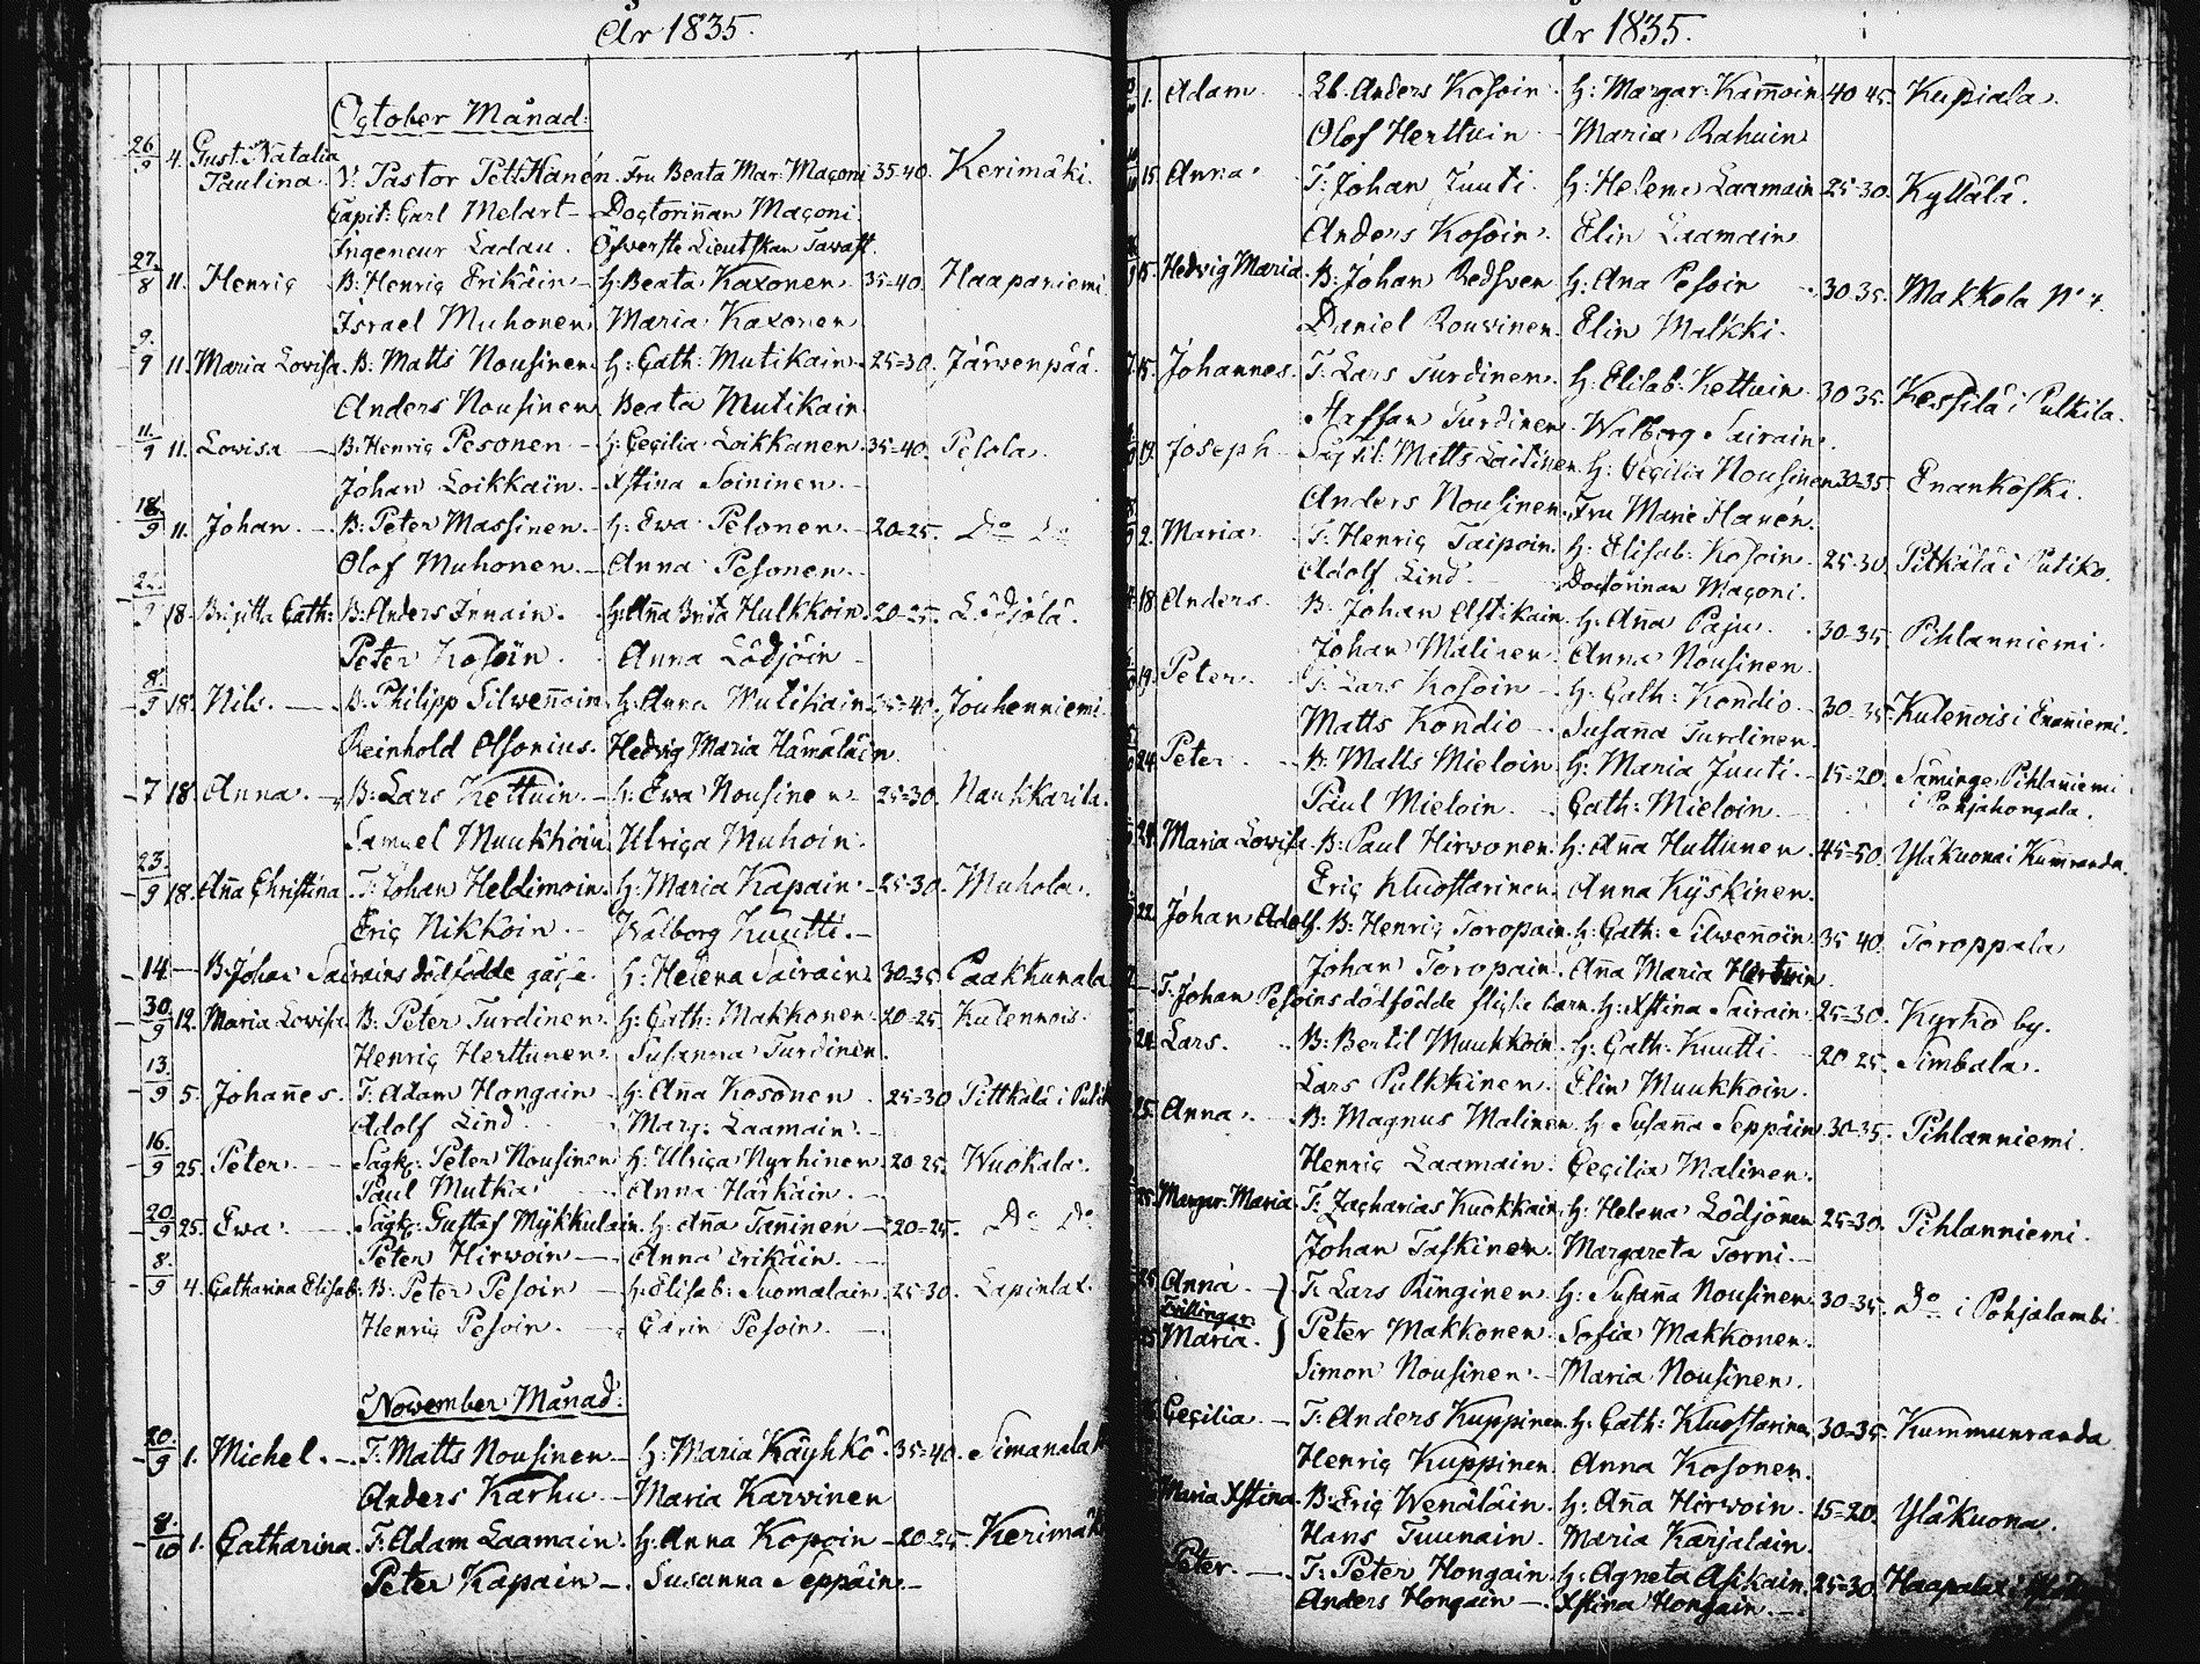 År 1835.
October Månad:
26/9 4. Gust. Natalia
Paulina. V: Pastor Pett Hanén. Fru Beata Mar: Maçoni 35=40. Kerimäki.
Capit: Carl Melart - Doctorinnan Maçoni.
Ingeneur Ladau. Öfverste Lieutskan Tawast.
27/8 11. Henric B: Henric Erikäin - H: Beata Kaxonen. 35=40. Haapaniemi
Israel Muhonen Maria Kaxonen
9./9 11. Maria Lovisa. B: Matts Nousinen. H: Cath: Mutikain. 25=30. Järwenpää.
Anders Nousinen Beata Mutikain
11./9 11. Lovisa - B: Henric Pesonen - H: Cecilia Loikkanen. 35=40. Pesola.
Johan Loikkain. - Xstina Soininen. -
18./9 11. Johan. - B: Peter Massinen. - H: Ewa Pesonen. - 20=25. Do Do
Olof Muhonen. - Anna Pesonen.
9 18. Brigitta Cath: B: Anders Innain. H: Aña Brita Hulkkoin. 20-25. Lödjölä.
Peter Kosoin. Anna Lödjöin -
8./9 18. Nils. - B: Philipp Silweñoin. H: Anna Mutikain 35=40. Jouhenniemi.
Reinhold Olsonius. Hedvig Maria Hämäläin.
7 18. Anna. - B: Lars Kettuin. - H: Ewa Nousinen - 25=30. Naukkarila.
Samuel Muukkoin. Ulrica Muhoin.
23./9 18. Aña Christina T: Johan Heldimoin. H: Maria Kapain. - 25=30. Muhola.
Eric Nikkoin. - Walborg Kuutti. -
14. - B: Johan Sairains dödfödde gåsse. H: Helena Sairain. 30=35. Paakkunala
30./9 12. Maria Lovisa. B: Peter Turdinen. H: Cath: Makkonen. 20=25. Kulennois.
Henric Herttunen. Susanna Turdinen.
13./9 5. Johañes. T: Adam Hongain. H: Aña Kosonen. 25=30 Pittkälä i Puti
Adolf Lind. Marg: Laamain. -
16./9 25. Peter. - Sågk: Peter Nousinen H: Ulrica Nyrhinen. 20-25. Wuokala.
Paul Mutka. Anna Härkäin. -
20./9 25. Ewa. - Sågk: Gustaf Mykkulain. H: Aña Tañinen - 20=25. Do Do
Peter Hirwoin - Anna Erikäin. -
8./9 4. Catharina Elisab: B: Peter Pesoin - H: Elisab: Suomalain. 25-30. Lapinlax.
Henric Pesoin. - Carin Pesoin. -
November Månad:
20./9 1. Michel. - T: Matts Nousinen - H: Maria Käyhkö. 35=40. Simanala
Anders Karhu. - Maria Karvinen
4./10 1. Catharina. T: Adam Laamain. H: Anna Kopoin - 20=25. Kerimä
Peter Kapain - Susanna Seppäin. -
År 1835.
1. Adam. Lb. Anders Kosoin. H: Margar: Kamoin 40 45. Kupiala.
Olof Herttuin - Maria Rahuin
15. Anna. T: Johan Juuti. H: Helena Laamain 25=30. Kyllälä.
Anders Kosoin. Elin Laamain
15. Hedvig Maria. B: Johan Redsven H: Ana Pesoin 30 35. Makkola No 4.
Daniel Rouvinen. Elin Malkki.
15. Johannes. T: Lars Turdinen. H: Elisab: Kettuin. 30 35. Kessilä i Pulkila.
Staffan Turdinen. Walborg Sairain.
19. Joseph Matts Laitinen. H: Cecilia Nousinen 30=35. Enankoski.
Anders Nousinen. Fru Marie Hanén.
2. Maria. T: Henric Taipoin. H: Elisab: Kosoin. 25-30. Pitkälä i Putiko.
Adolf Lind. Doctorinnan Maçoni.
18. Anders. B: Johan Astikain. H: Aña Paju. 30-35. Pihlanniemi.
Johan Malinen. Anna Nousinen.
19. Peter. T: Lars Kosoin - H: Cath: Kondio. 30-35. Kuleñois i Enañiemi.
Matts Kondio -. Susaña Turdinen.
24. Peter. - B: Matts Mieloin H: Maria Juuti. - 15=20. Säminge Pihlañiemi
i Pohjakongala.
Paul Mieloin. Cath: Mieloin. -
24. Maria Lovisa. B: Paul Hirvonen. H: Aña Huttunen. 45=50. Yläkuona i Kumranda.
Eric Kluostarinen. Anna Kyskinen.
22. Johan Adolf. B: Henric Toropain. H: Cath: Silweñoin 35 40. Toroppala
Johan Toropain. Aña Maria Hirtuin.
- T: Johan Pesoins dödfödde flicke barn. H: Xstina Sairain. 25=30. Kyrkoby.
24. Lars. B: Bertil Muukkoin. H: Cath: Kuutti. 20 25. Simbala.
Lars Pulkkinen. Elin Muukkoin.
25. Anna. - B: Magnus Malinen. H: Susaña Seppäin 30=35. Pihlanniemi.
Henric Laamain. Cecilia Malinen.
25. Margar: Maria. T: Zacharias Kuokkain. H: Helena Lödjönen 25=30. Pihlanniemi.
Johan Taskinen. Margareta Torni. -
25. Anna. - } T: Lars Ringinen H: Susaña Nousinen. 30=35. Do i Pohjalambi.
Tvillingar
25 Maria. } Peter Makkonen. Sofia Makkonen.
Simon Nousinen. - Maria Nousinen.
Cecilia. - T: Anders Kuppinen. H: Cath: Kluostarinen 30=35. Kummunranda
Henric Kuppinen. Anna Kosonen.
Maria Xstina. B: Eric Wenäläin. H: Aña Hirwoin. 15=20. Yläkuona.
Hans Tuunain. Maria Karjalain.
Peter. -. T: Peter Hongain. H: Agneta Asikain. 25=30. Haapalax i
Anders Hongain -. Xstina Hongain. -